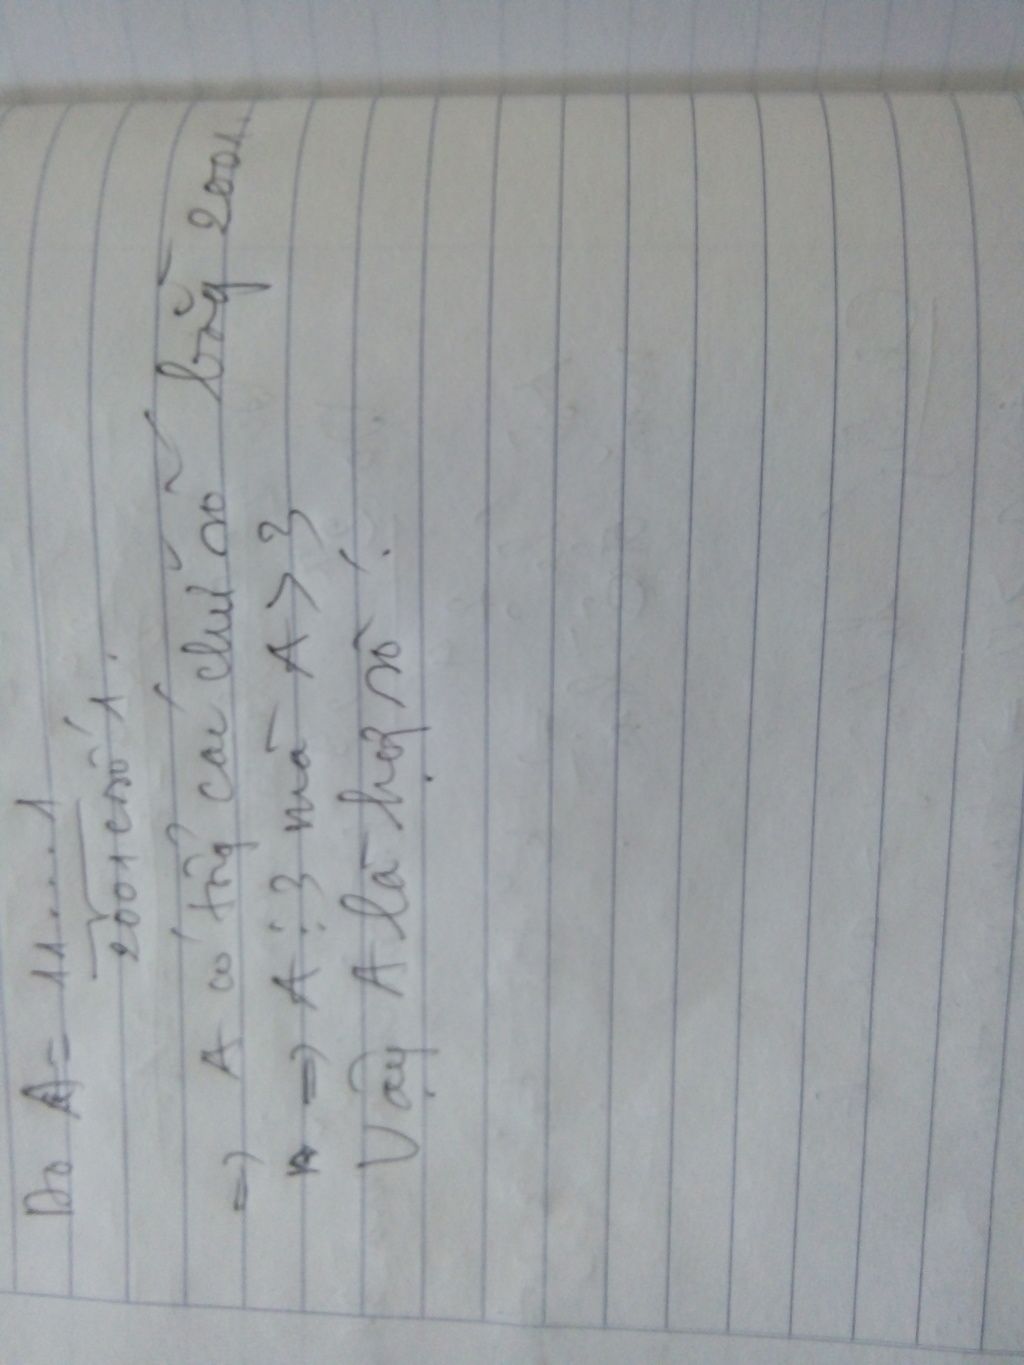 Do A = 11.....1
2001 c/số 1.
=> A có tổng các chữ số bằng 2001.
=> A ⋮ 3 mà A > 3
Vậy A là hợp số.